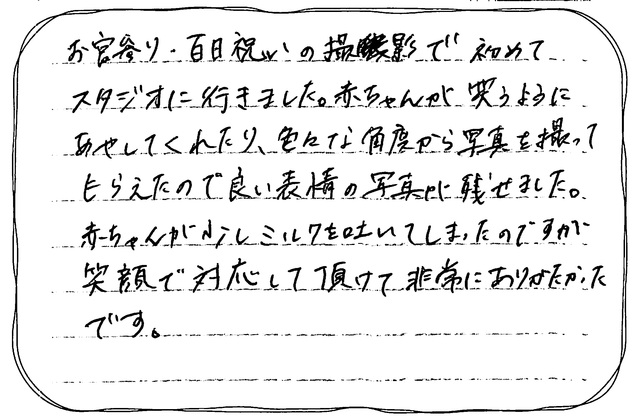 お宮参り・百日祝いの撮影で 初めて
スタジオに行きました。赤ちゃんが 笑うように
あやしてくれたり、色々な角度から写真を撮って
もらえたので良い表情の写真が残せました。
赤ちゃんが少しミルクを吐いてしまったのですが
笑顔で対応して頂けて非常にありがたかった
です。